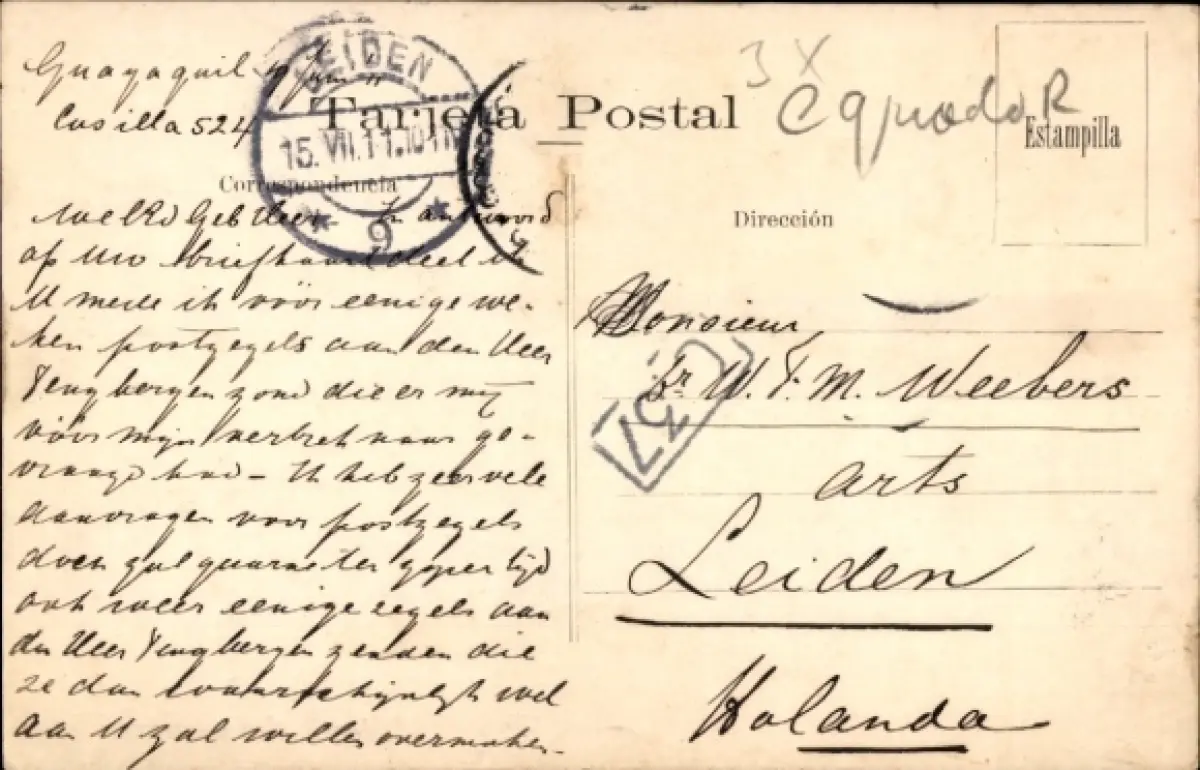 Guayaquil 9 Juni 11
Casilla 524
LEIDEN
15.VII.11.10-11
9
Tarjeta Postal
3 X
EquadoR
Estampilla
Correspondencia
Dirección
WelEd Geb Heer. In antwoord
op Uw briefkaart deel ik
U mede ik vóór eenige we-
ken postzegels aan den Heer
Tengbergen zond die er mij
vóór mijn vertrek naar ge-
vraagd had - Ik heb zeer vele
aanvragen voor postzegels
doch zal te zijner tijd
ook weer eenige zegels aan
den Heer Tengbergen zenden die
ze dan waarschijnlijk wel
aan U zal willen overmaken.
Monsieur
Dr W. F. M. Weebers
arts
Leiden
Holanda